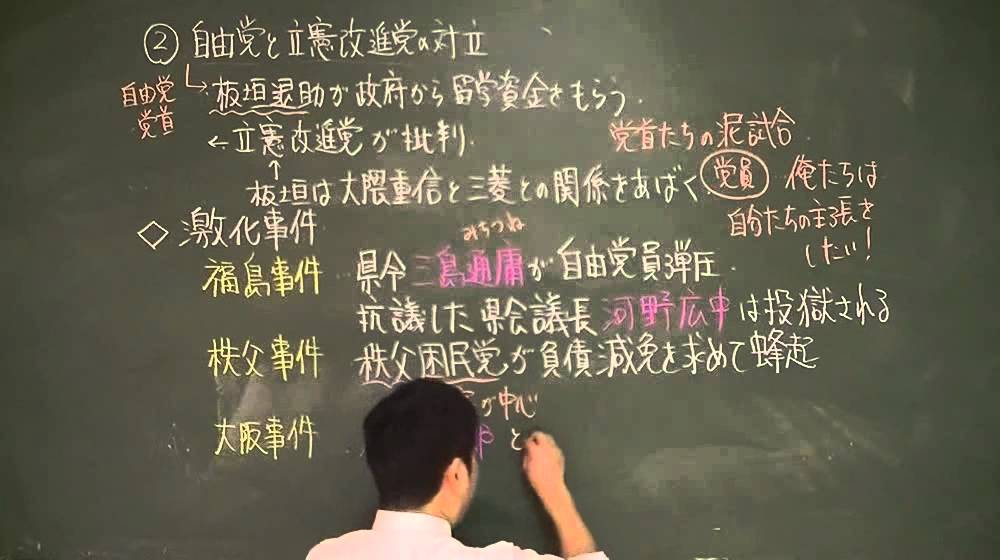 ② 自由党と立憲改進党の対立
自由党
党首
↳板垣退助が政府から留学資金をもらう.
←立憲改進党が批判.
↑
板垣は大隈重信と三菱との関係をあばく
党首たちの泥試合
党員 俺たちは
自分たちの主張を
したい!
◇激化事件
福島事件 県令三島通庸が自由党員弾圧.
みちつね
抗議した県会議長河野広中は投獄される
秩父事件 秩父困民党が負債減免を求めて蜂起
が中心
大阪事件 と